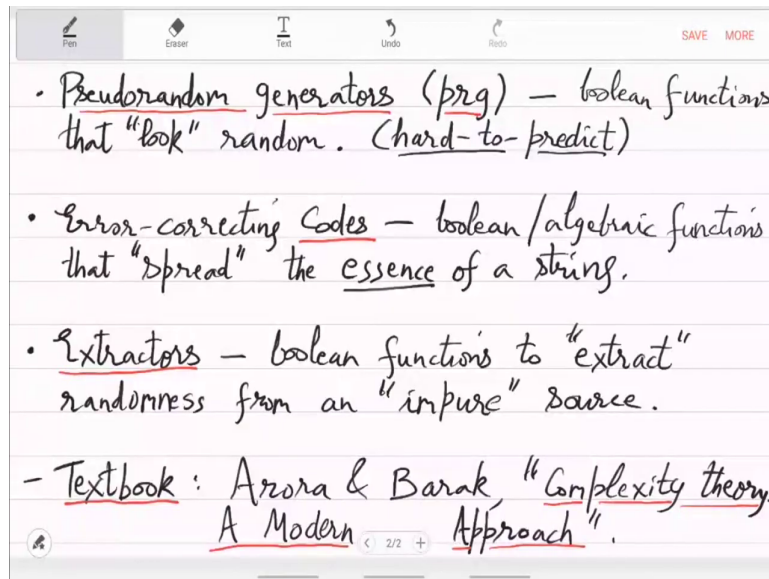 Pen Eraser Text Undo Redo SAVE MORE
• Pseudorandom generators (prg) — boolean functions
that "look" random. (hard-to-predict)
• Error-correcting Codes — boolean/algebraic functions
that "spread" the essence of a string.
• Extractors — boolean functions to "extract"
randomness from an "impure" source.
- Textbook: Arora & Barak, "Complexity theory.
A Modern Approach".
2/2